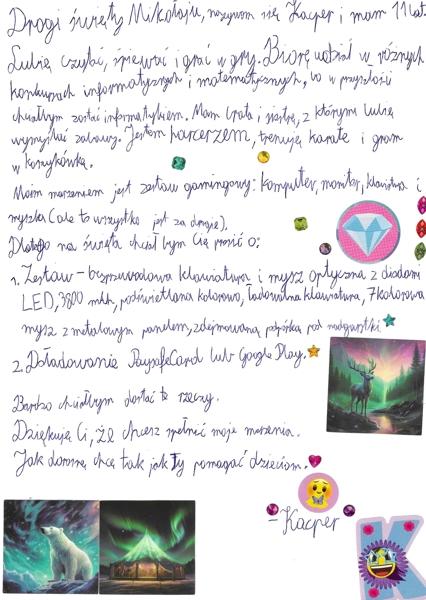 Drogi święty Mikołaju, nazywam się Kacper i mam 11 lat.
Lubię czytać, śpiewać i grać w gry. Biorę udział w różnych
konkursach informatycznych i matematycznych, bo w przyszłości
chciałbym zostać informatykiem. Mam brata i siostrę, z którymi lubię
wymyślać zabawy. Jestem harcerzem, trenuję karate i gram
w koszykówkę.
Moim marzeniem jest zestaw gamingowy: komputer, monitor, klawiatura i
myszka (ale to wszystko jest za drogie).
Dlatego na święta chciałbym Cię prosić o:
1. Zestaw - bezprzewodowa klawiatura i mysz optyczna z diodami
LED, 3800 mAh, podświetlana kolorowo, ładowalna klawiatura, 7 kolorowa
mysz z metalowym panelem, zdejmowaną podpórką pod nadgarstki
2. Doładowanie PaysafeCard lub Google Play.
Bardzo chciałbym dostać te rzeczy.
Dziękuję Ci, że chcesz spełnić moje marzenia.
Jak dorosnę chcę tak jak Ty pomagać dzieciom.
- Kacper
K